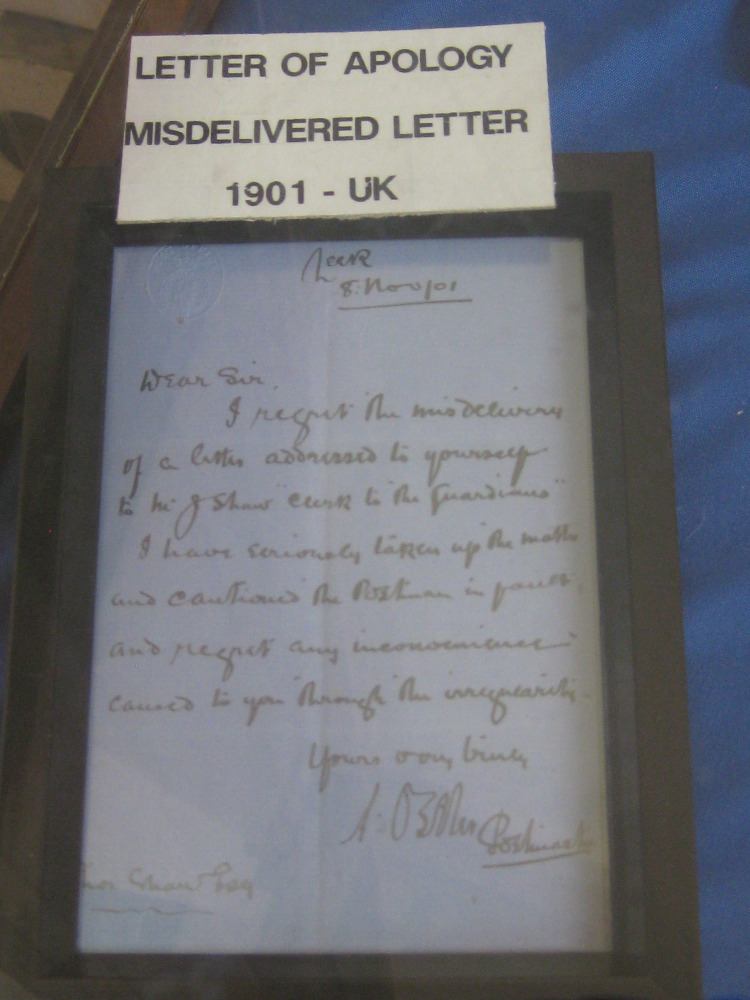 LETTER OF APOLOGY
MISDELIVERED LETTER
1901 - UK
Leek
8. Nov/01
Dear Sir,
I regret the misdelivery
of a letter addressed to yourself
to Mr J Shaw "Clerk to the Guardians"
I have seriously taken up the matter
and cautioned the Postman in fault,
and regret any inconvenience
caused to you through the irregularity.
Yours very truly
Postmaster
Shaw Esq